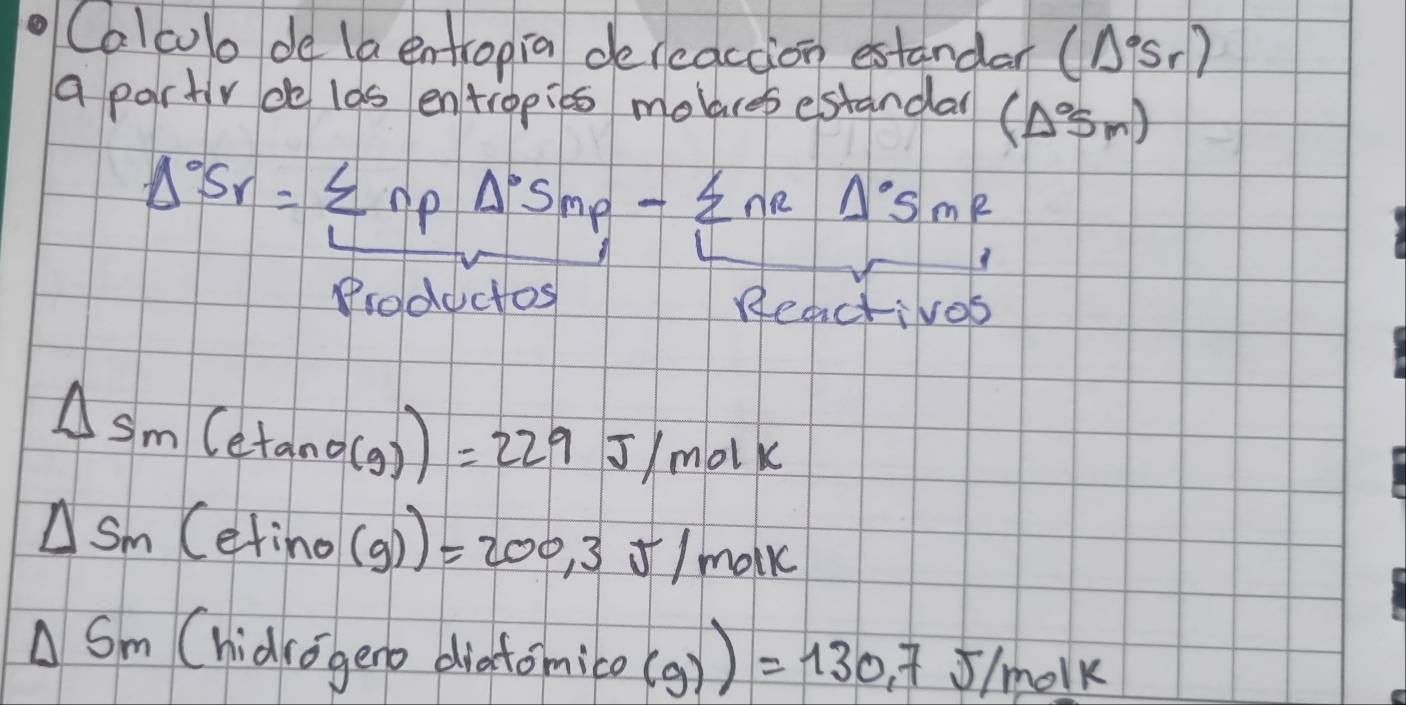 Calculo de la entropia de reacción estandar (Δ°Sr)
a partir de las entropias molares estandar (Δ°Sm)
Δ°Sr = Σ np Δ°Smp - Σ nR Δ°SmR
Productos Reactivos
ΔSm (etano(g)) = 229 J/molK
ΔSm (etino (g)) = 200,3 J/molK
ΔSm (hidrógeno diatómico (g)) = 130,7 J/molK